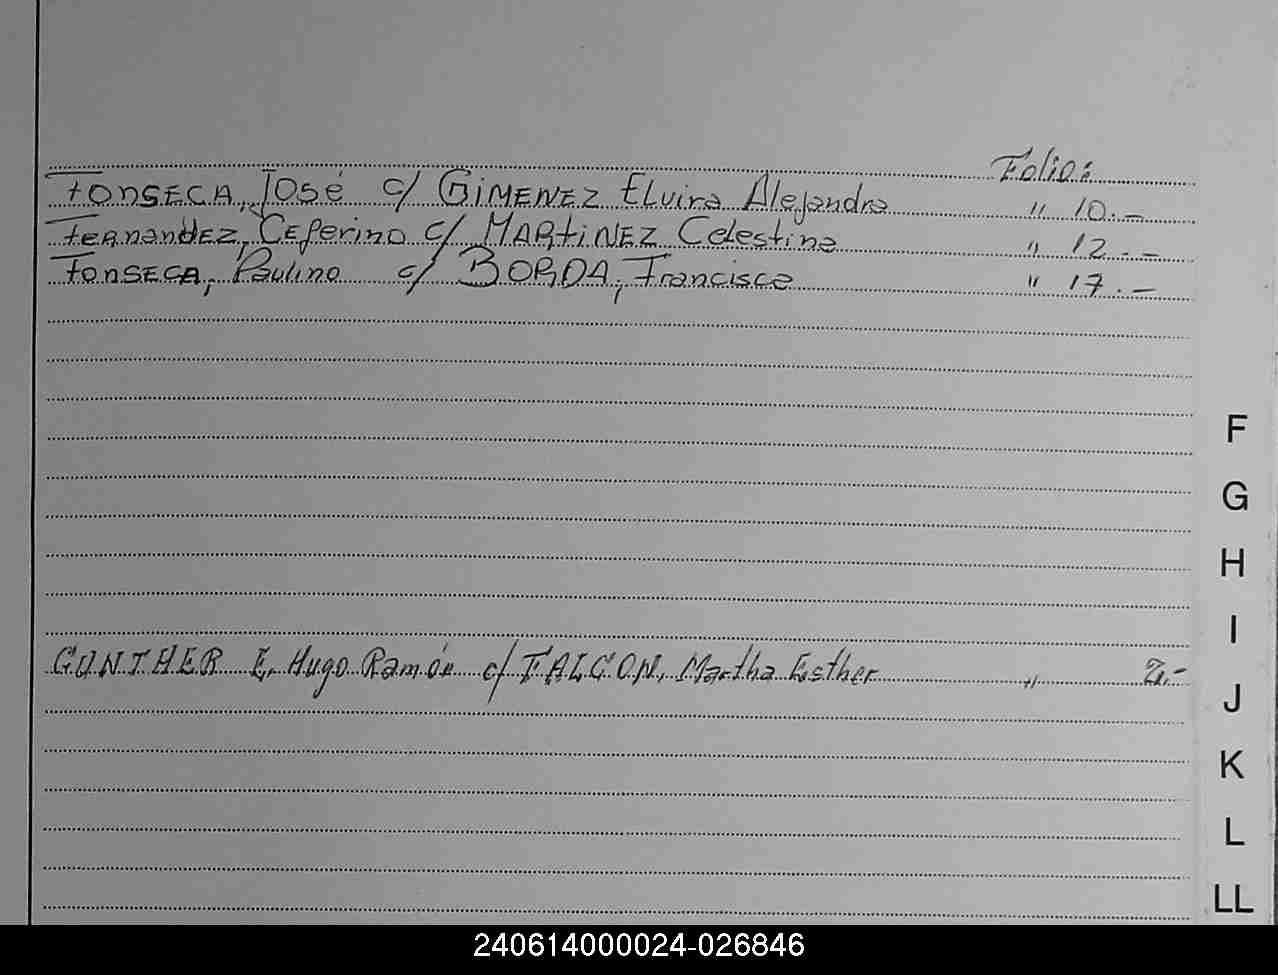 Folio:
Fonseca, José c/ GIMENEZ Elvira Alejandra " 10.-
Fernandez, Ceferino c/ MARTINEZ Celestina " 12.-
Fonseca, Paulino c/ BORDA, Francisca " 17.-
F
G
H
I
GUNTHER E, Hugo Ramón c/ FALCON, Martha Esther " 2.-
J
K
L
LL
240614000024-026846